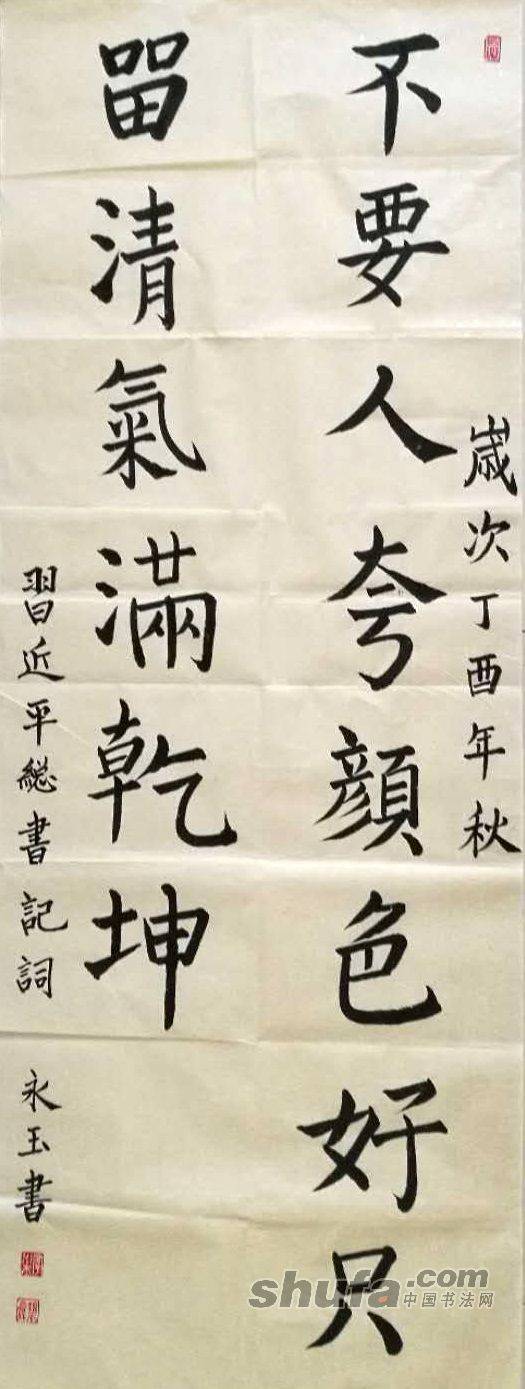 歲次丁酉年秋
不要人夸顔色好只
畱清氣滿乾坤
習近平總書記詞
永玉書
shufa.com
中国书法网